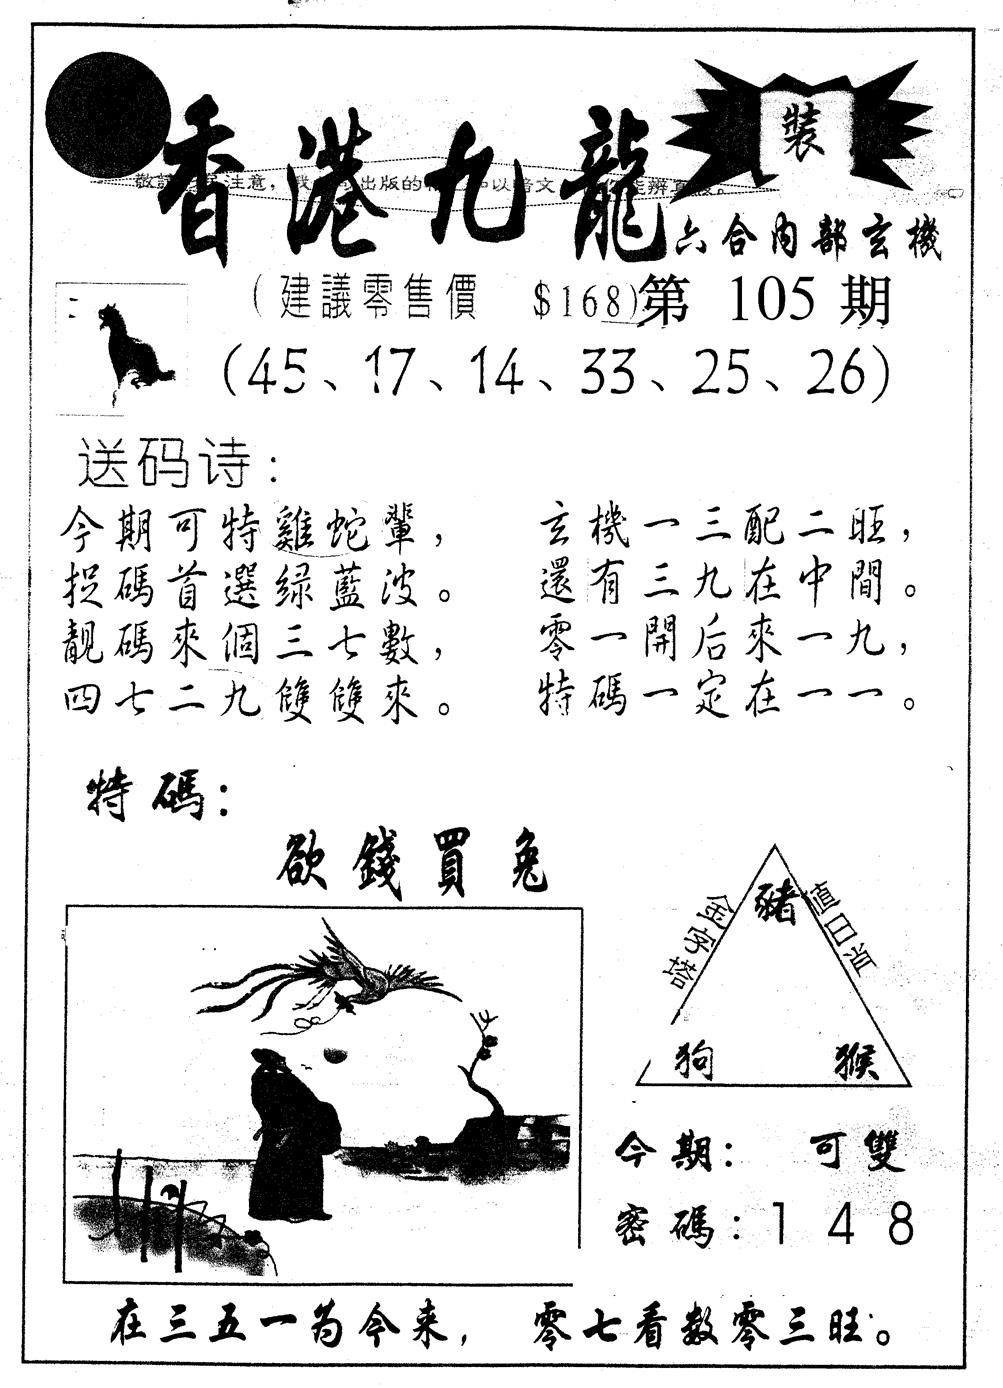 香港九龍
裝
六合內部玄機
（建議零售價 $168）第 105 期
（45、17、14、33、25、26）
送码诗：
今期可特雞蛇輩，
捉碼首選绿藍波。
靚碼來個三七數，
四七二九雙雙來。
玄機一三配二旺，
還有三九在中間。
零一開后來一九，
特碼一定在一一。
特碼：
欲錢買兔
金字塔
值日肖
豬
狗 猴
今期： 可雙
密碼：1 4 8
在三五一为今来， 零七看数零三旺。